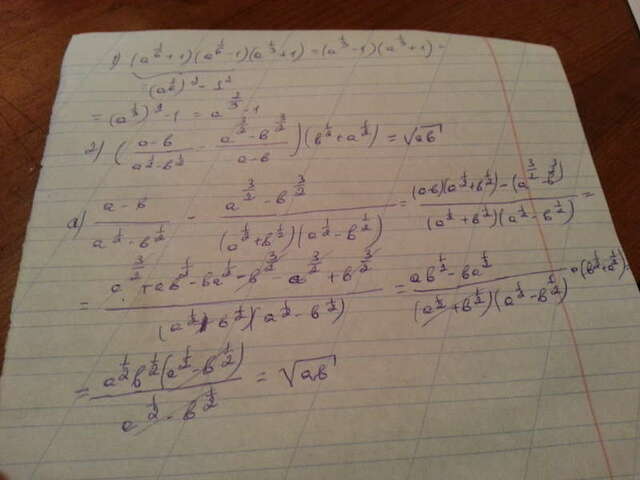 1) (a^{1/6}+1)(a^{1/6}-1)(a^{1/3}+1)=(a^{1/3}-1)(a^{1/3}+1)=
=(a^{1/6})^2-1^2
=(a^{1/3})^2-1=a^{2/3}-1
2) ((a-b)/(a^{1/2}-b^{1/2}) - (a^{3/2}-b^{3/2})/(a-b))(b^{1/2}+a^{1/2})=√ab
a) (a-b)/(a^{1/2}-b^{1/2}) - (a^{3/2}-b^{3/2})/((a^{1/2}+b^{1/2})(a^{1/2}-b^{1/2})) = ((a-b)(a^{1/2}+b^{1/2})-(a^{3/2}-b^{3/2}))/((a^{1/2}+b^{1/2})(a^{1/2}-b^{1/2})) =
= (a^{3/2}+ab^{1/2}-ba^{1/2}-b^{3/2}-a^{3/2}+b^{3/2})/((a^{1/2}+b^{1/2})(a^{1/2}-b^{1/2})) = (ab^{1/2}-ba^{1/2})/((a^{1/2}+b^{1/2})(a^{1/2}-b^{1/2})) • (b^{1/2}+a^{1/2})=
= (a^{1/2}b^{1/2}(a^{1/2}-b^{1/2}))/(a^{1/2}-b^{1/2}) = √ab